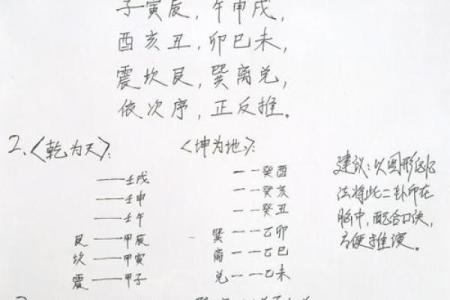 子寅辰，午申戌，
酉亥丑，卯巳未，
震坎艮，巽离兑，
依次序，正反推。
2、〈乾为天〉：
〈坤为地〉：
——壬戌
——壬申
——壬午
艮——甲辰
坎——甲寅
震——甲子
— —癸酉
— —癸亥
— —癸丑
巽— —乙卯
离— —乙巳
兑— —乙未
建议：以图形记忆
法将此二卦印在
脑中，配合口诀，
方便推演。